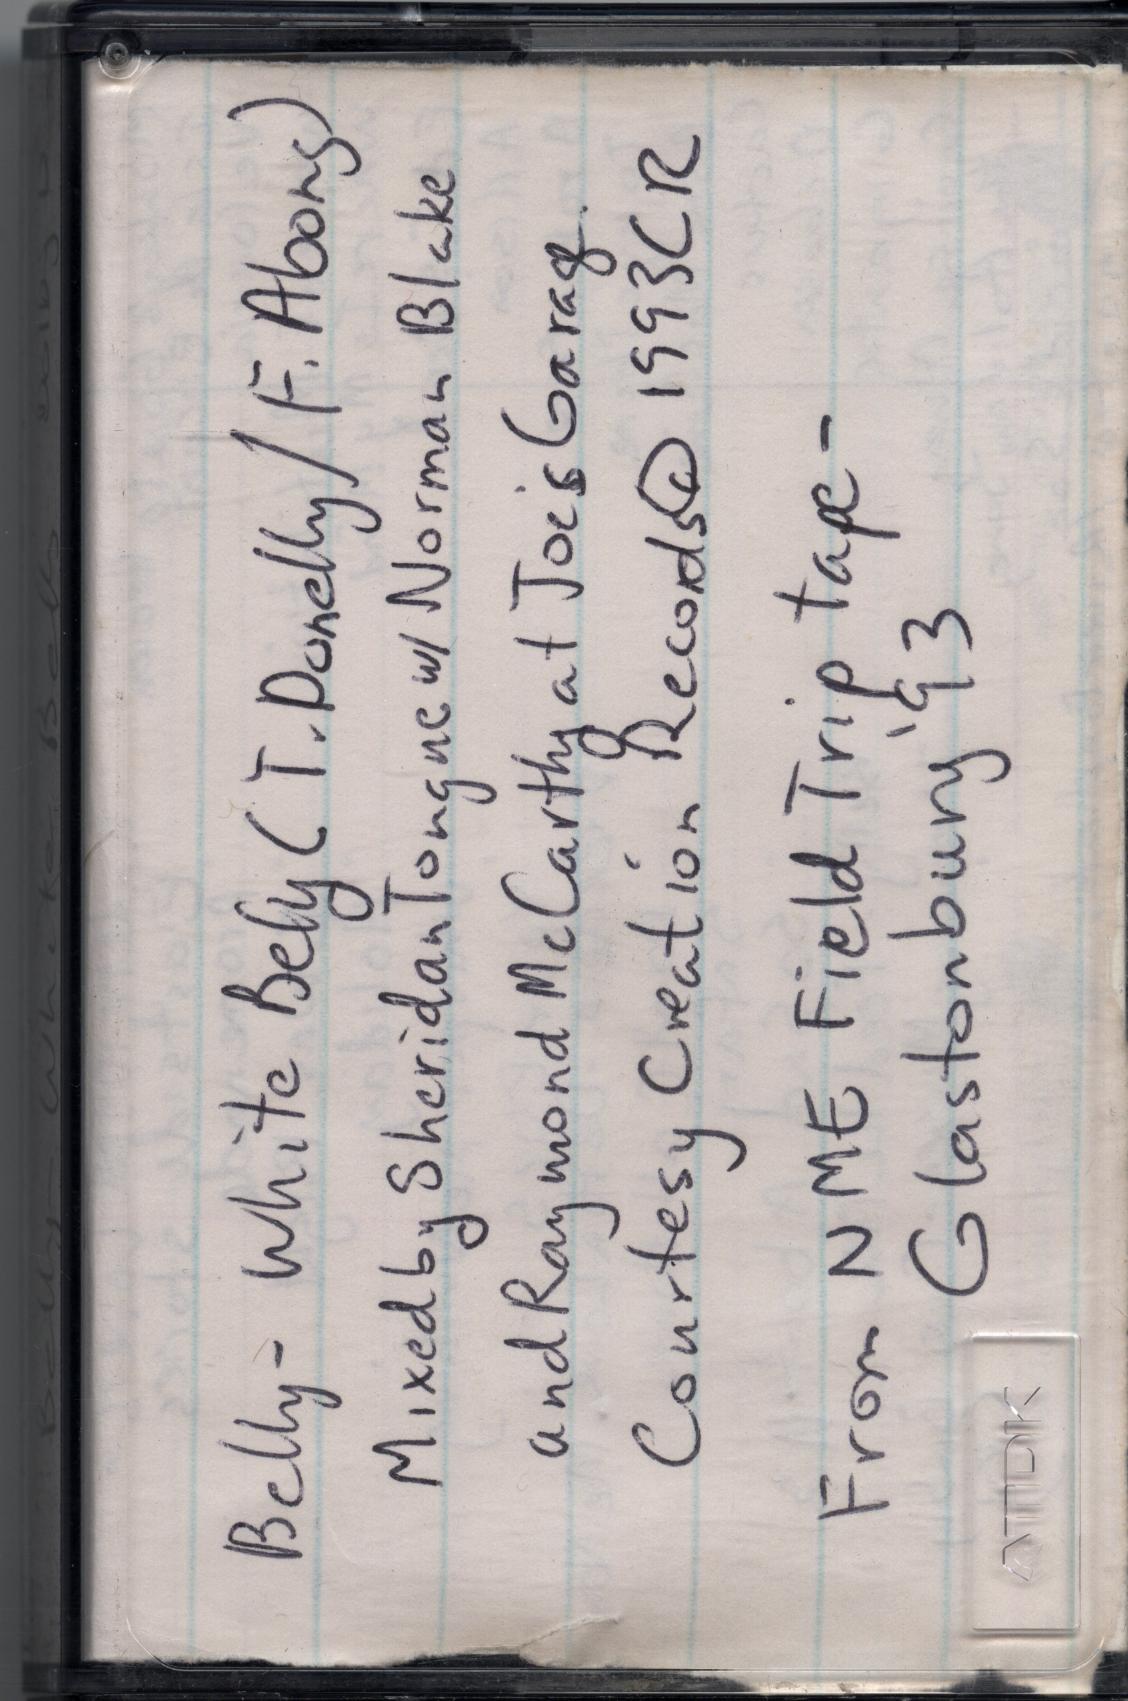 Belly - White Belly (T. Donelly / F. Abong)
Mixed by Sheridan Tongue w/ Norman Blake
and Raymond McCarthy at Joe's Garag.
Courtesy Creation Records @ 1993 CR
From NME Field Trip tape -
Glastonbury '93
TDK